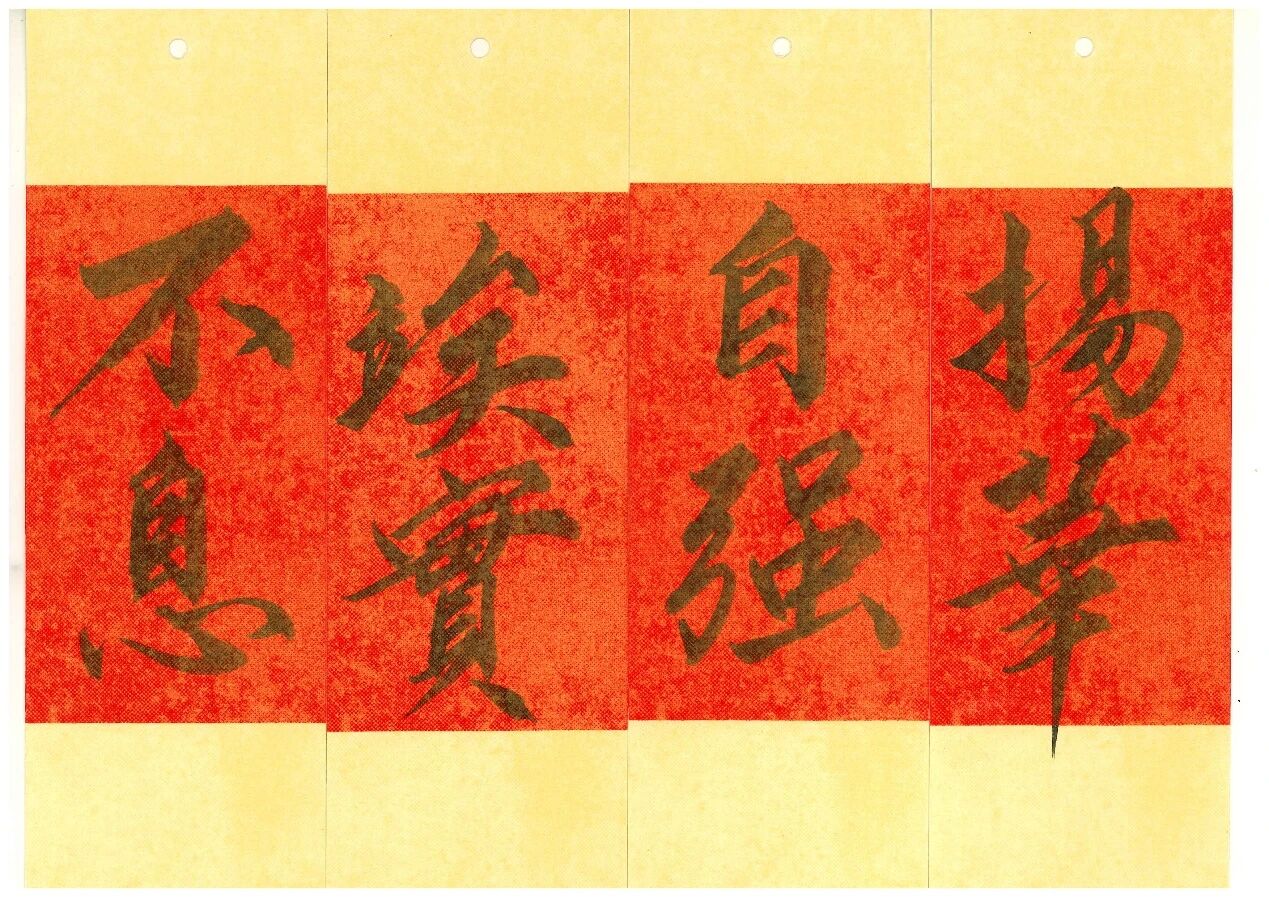 揚華
自强
竢實
不息